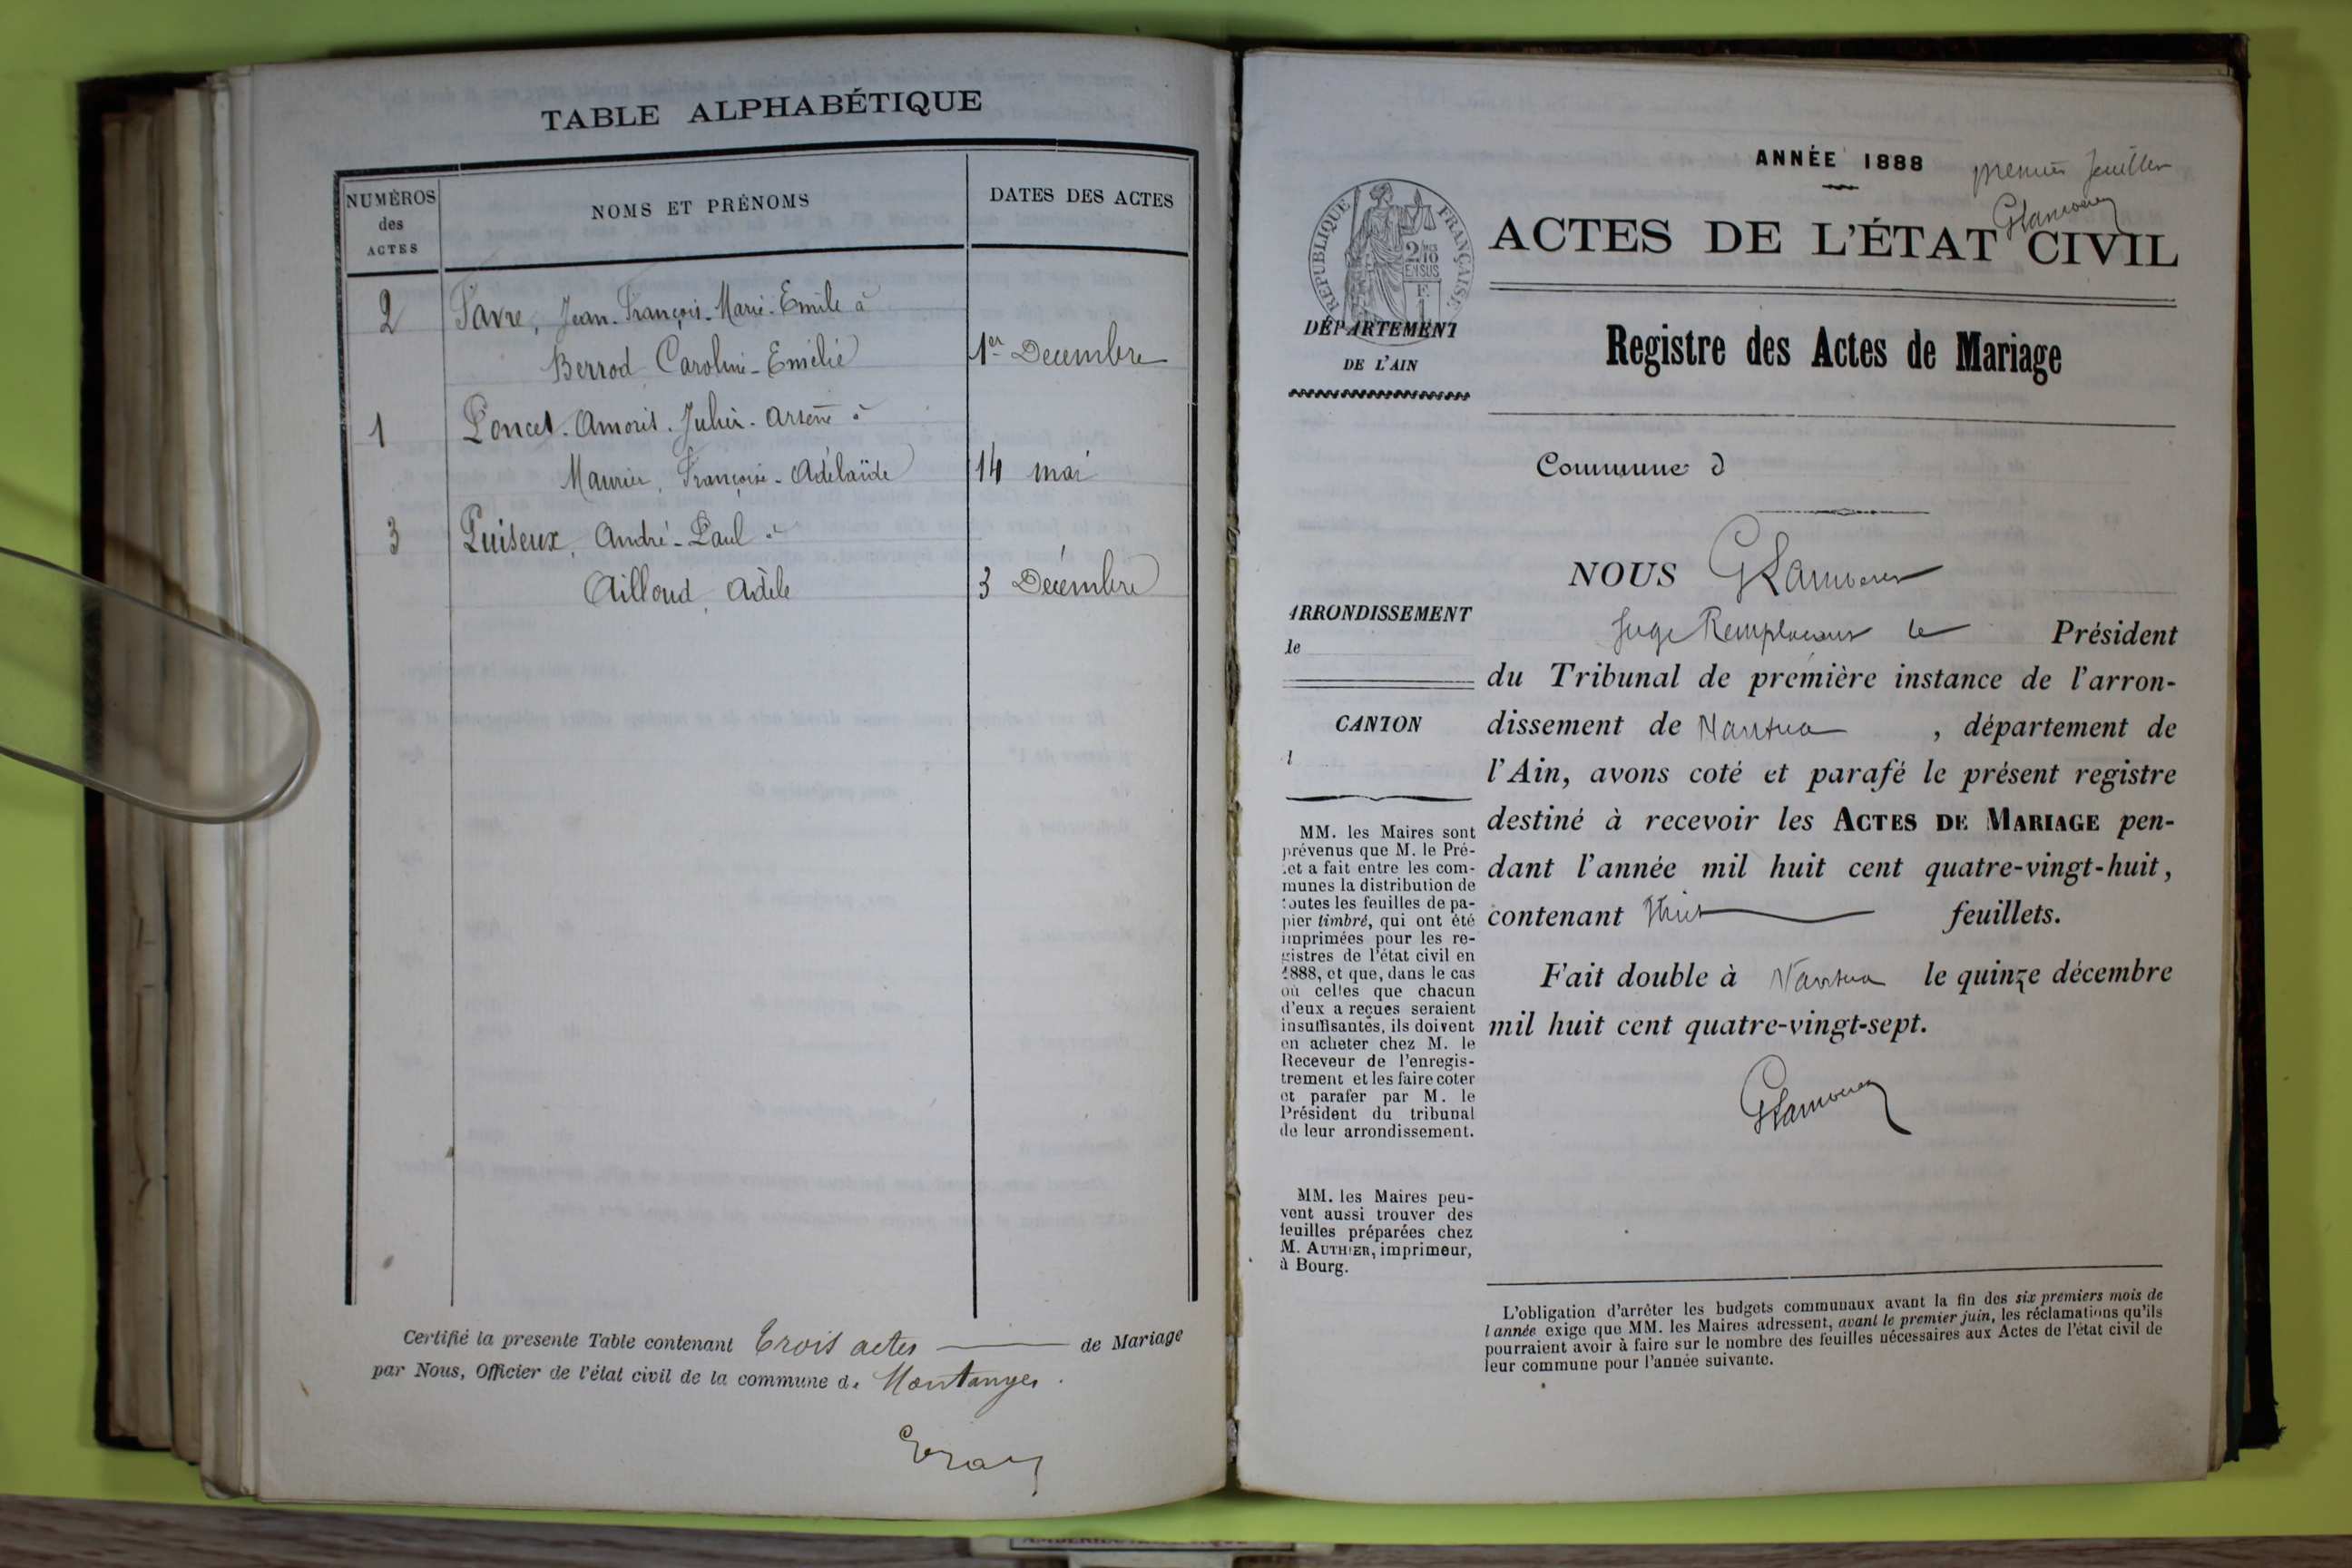 TABLE ALPHABÉTIQUE
NUMÉROS
des
ACTES
NOMS ET PRÉNOMS
DATES DES ACTES
2
Favre, Jean-François-Marie-Emile à
Berrod Caroline-Emélie
1er Décembre
1
Poncet. Amoris. Julien. Arsène à
Maurier, Françoise-Adélaïde
14 mai
3
Puiseux, André-Paul à
Ailloud, Adèle
3 Décembre
Certifié la presente Table contenant trois actes de Mariage
par Nous, Officier de l'état civil de la commune de Montanges.
ANNÉE 1888
premier feuillet
RÉPUBLIQUE FRANÇAISE
2/10
EN SUS
ACTES DE L'ÉTAT CIVIL
DÉPARTEMENT
DE L'AIN
Registre des Actes de Mariage
Commune d
NOUS
ARRONDISSEMENT
de
Juge Remplaçant le Président
du Tribunal de première instance de l'arron-
CANTON
dissement de Nantua, département de
l'Ain, avons coté et parafé le présent registre
destiné à recevoir les ACTES DE MARIAGE pen-
dant l'année mil huit cent quatre-vingt-huit,
contenant Huit feuillets.
Fait double à Nantua le quinze décembre
mil huit cent quatre-vingt-sept.
MM. les Maires sont
prévenus que M. le Pré-
fet a fait entre les com-
munes la distribution de
toutes les feuilles de pa-
pier timbré, qui ont été
imprimées pour les re-
gistres de l'état civil en
1888, et que, dans le cas
où celles que chacun
d'eux a reçues seraient
insuffisantes, ils doivent
en acheter chez M. le
Receveur de l'enregis-
trement et les faire coter
et parafer par M. le
Président du tribunal
de leur arrondissement.
MM. les Maires peu-
vent aussi trouver des
feuilles préparées chez
M. AUTHIER, imprimeur,
à Bourg.
L'obligation d'arrêter les budgets communaux avant la fin des six premiers mois de
l'année exige que MM. les Maires adressent, avant le premier juin, les réclamations qu'ils
pourraient avoir à faire sur le nombre des feuilles nécessaires aux Actes de l'état civil de
leur commune pour l'année suivante.